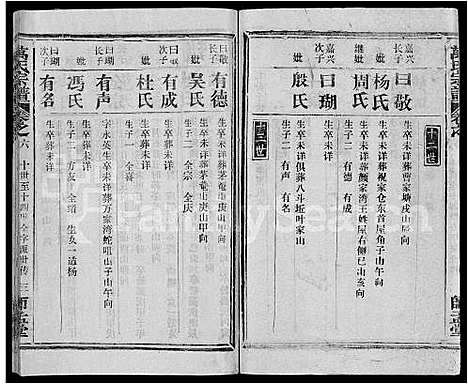 萬氏宗譜
十二世
嘉兴次子
曰敬
生卒未详葬曹家塝戌山辰向
妣
杨氏
生卒未详葬祝家仓东首屋角子山午向
妣
周氏
生卒未详葬颜家湾王姓屋右侧巳山亥向
生子二 有德 有成
嘉兴三子
曰瑚
妣
殷氏
生卒未详俱葬八斗坵叶家山
生子二 有声 有名
十三世
曰敬长子
有德
妣
吴氏
生卒未详葬茅菴山庚山甲向
生子二 全宗 全庆
曰敬次子
有成
妣
杜氏
生卒未详
生子一 全喜
曰瑚长子
有声
字永英生卒未详葬万家湾蛇咀山子山午向
妣
冯氏
生卒葬未详
生子二 方友 全瑨 生女一适杨
曰瑚次子
有名
生卒葬未详
萬氏宗譜
卷之六
十世至十四世
三
FamilySearch